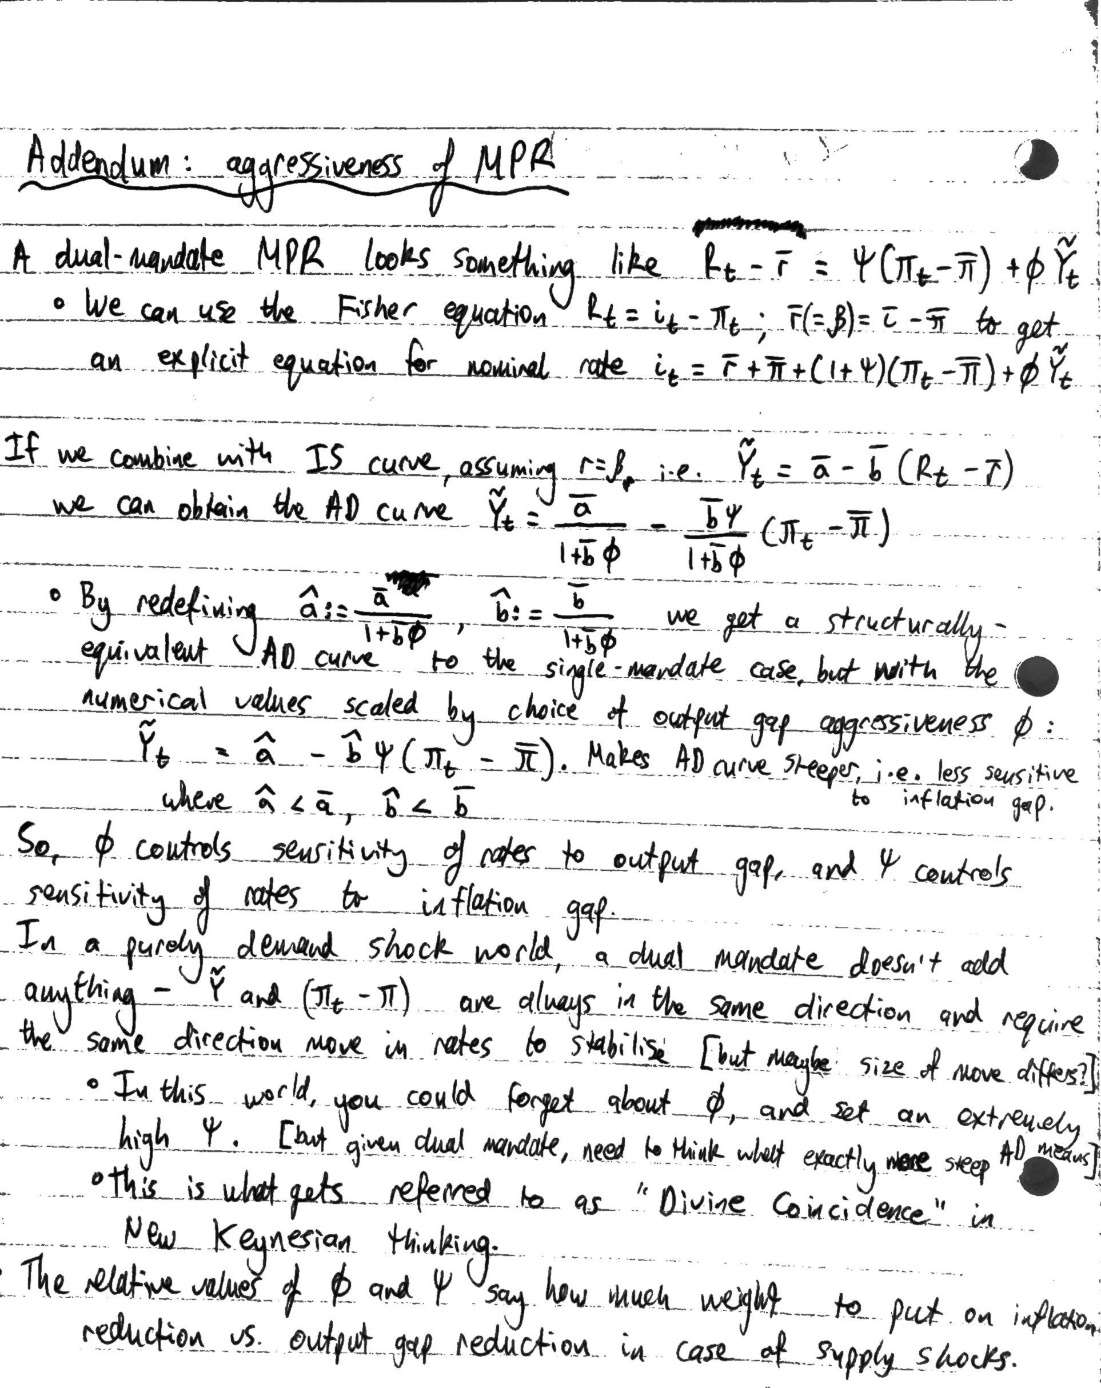 Addendum: aggressiveness of MPR
A dual-mandate MPR looks something like R_t - r̄ = ψ(π_t - π̄) + φỸ_t
• We can use the Fisher equation R_t = i_t - π_t; r̄(=β) = ī - π̄ to get
an explicit equation for nominal rate i_t = r̄ + π̄ + (1+ψ)(π_t - π̄) + φỸ_t
If we combine with IS curve, assuming r=β, i.e. Ỹ_t = ā - b̄(R_t - r̄)
we can obtain the AD curve Ỹ_t = ā/(1+b̄φ) - b̄ψ/(1+b̄φ) (π_t - π̄)
• By redefining â := ā/(1+b̄φ), b̂ := b̄/(1+b̄φ) we get a structurally-
equivalent AD curve to the single-mandate case, but with the
numerical values scaled by choice of output gap aggressiveness φ:
Ỹ_t = â - b̂ψ(π_t - π̄). Makes AD curve steeper, i.e. less sensitive
to inflation gap.
where â < ā, b̂ < b̄
So, φ controls sensitivity of rates to output gap, and ψ controls
sensitivity of rates to inflation gap.
In a purely demand shock world, a dual mandate doesn't add
anything - Ỹ and (π_t - π) are always in the same direction and require
the same direction move in rates to stabilise [but maybe size of move differs?]
• In this world, you could forget about φ, and set an extremely
high ψ. [but given dual mandate, need to think what exactly more steep AD means]
• this is what gets referred to as "Divine Coincidence" in
New Keynesian thinking.
The relative values of φ and ψ say how much weight to put on inflation
reduction vs. output gap reduction in case of supply shocks.